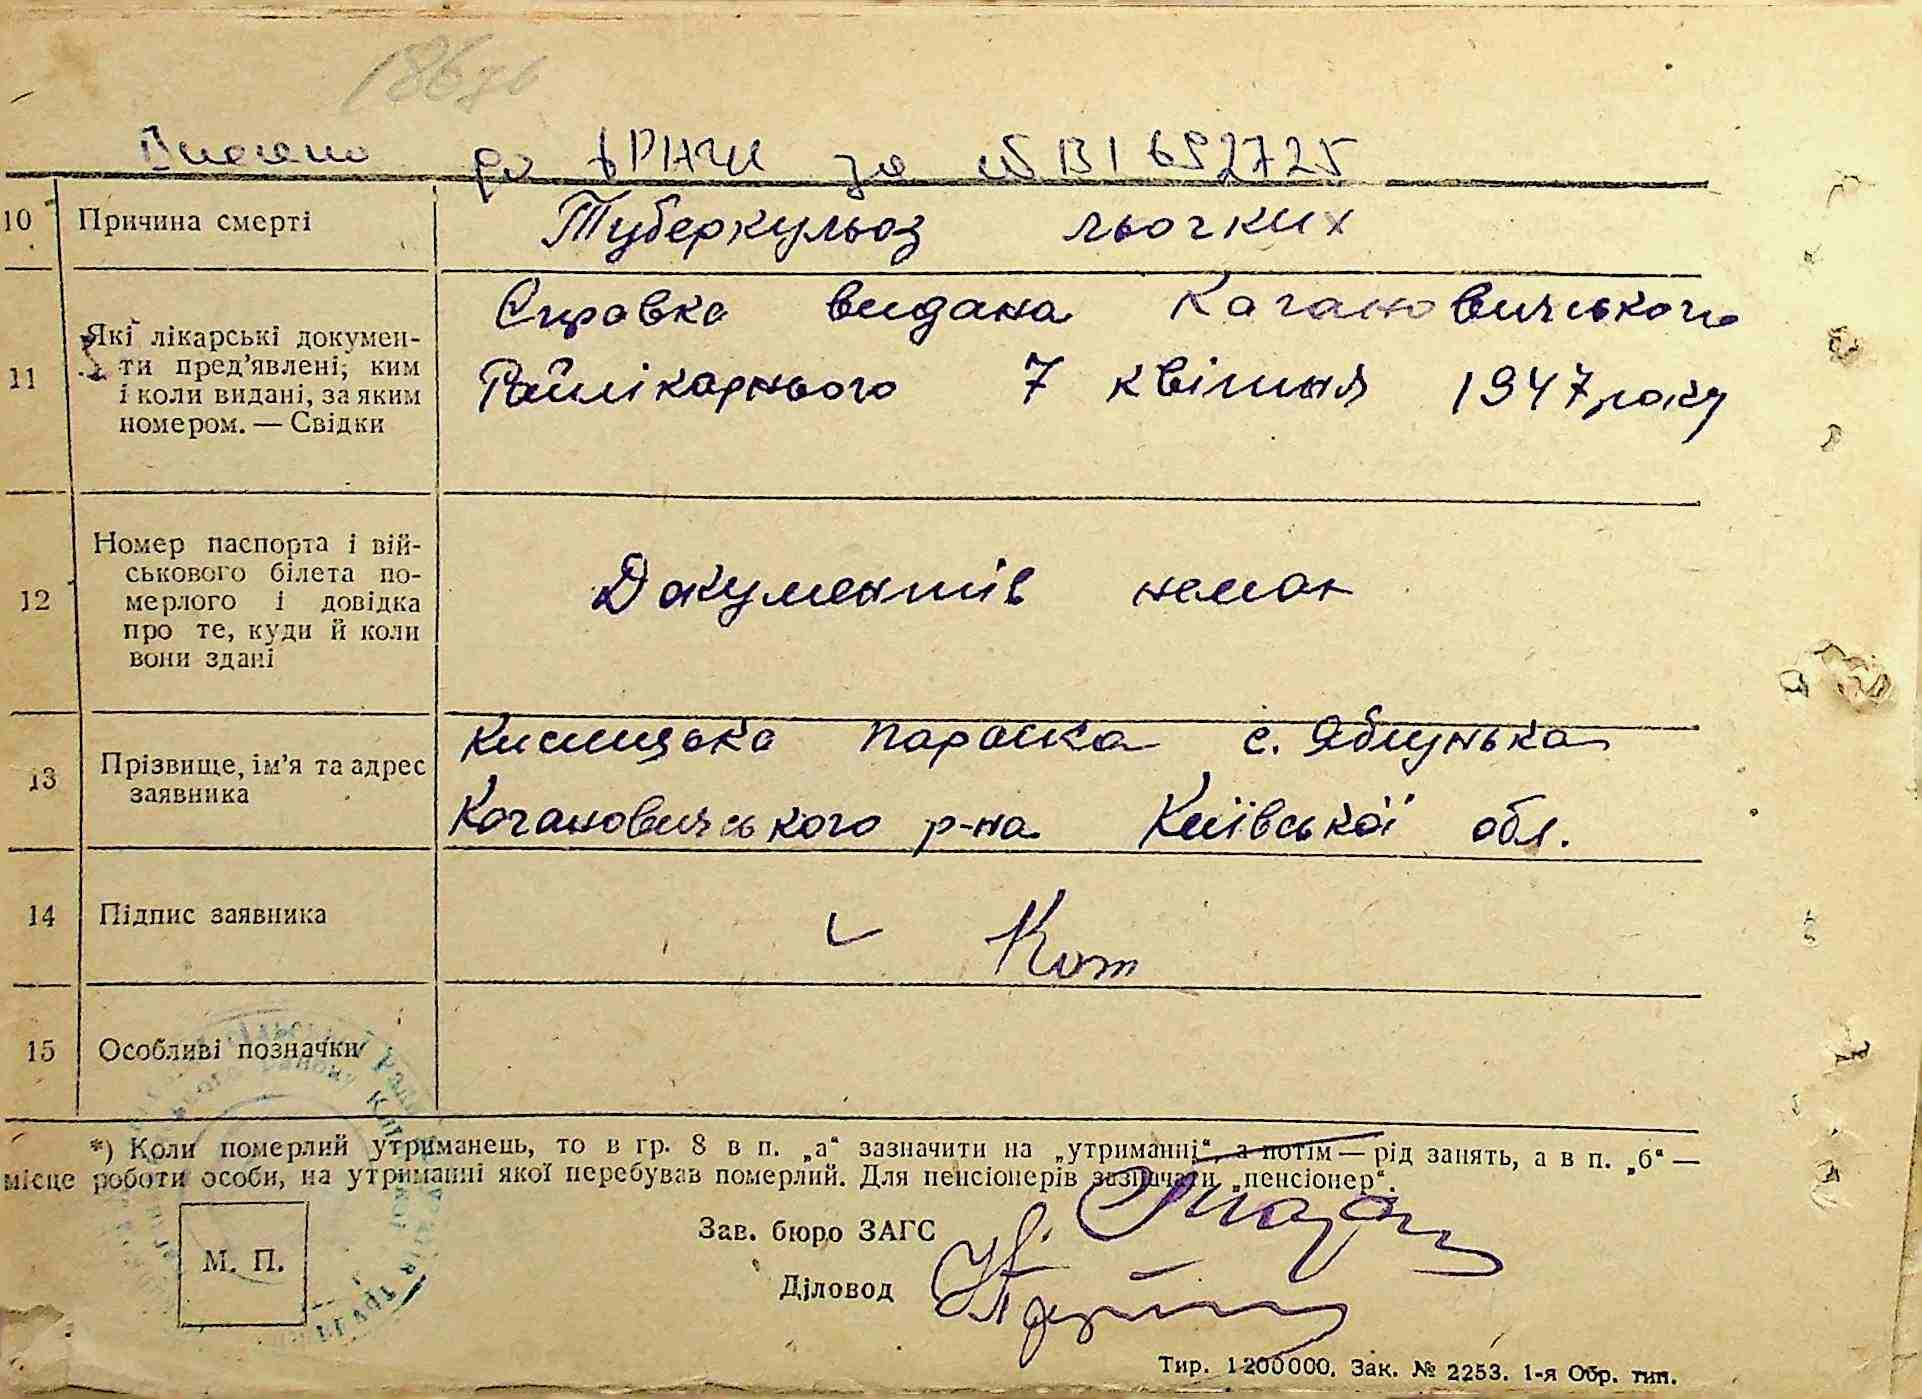 Внесено до ДРАЦС за № ВІ 692725
10 Причина смерті
Туберкульоз льогких
11 Які лікарські докумен-
ти пред'явлені; ким
і коли видані, за яким
номером. — Свідки
Справка видана Кагановичського
Райлікарнього 7 квітня 1947 року
12 Номер паспорта і вій-
ськового білета по-
мерлого і довідка
про те, куди й коли
вони здані
Документів немає
13 Прізвище, ім'я та адрес
заявника
Кислицька Параска с. Яблунька
Кагановичського р-на Київської обл.
14 Підпис заявника
Кот
15 Особливі позначки
*) Коли померлий утриманець, то в гр. 8 в п. „а“ зазначити на „утриманні“, а потім — рід занять, а в п. „б“ —
місце роботи особи, на утриманні якої перебував померлий. Для пенсіонерів зазначати „пенсіонер“.
М. П.
Зав. бюро ЗАГС
Діловод
Тир. 1200000. Зак. № 2253. 1-я Обр. тип.